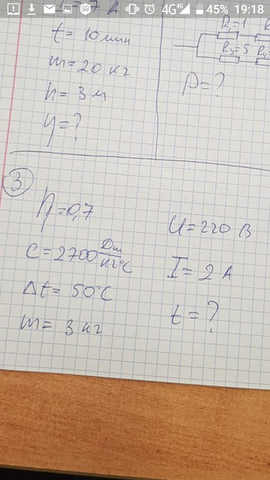 4G 45% 19:18
t = 10 мин
m = 20 кг
h = 3 м
η = ?
R₁=1
R₃=5
P = ?
③
η = 0,7
C = 2700 Дж/кг°C
Δt = 50°C
m = 3 кг
U = 220 В
I = 2 A
t = ?